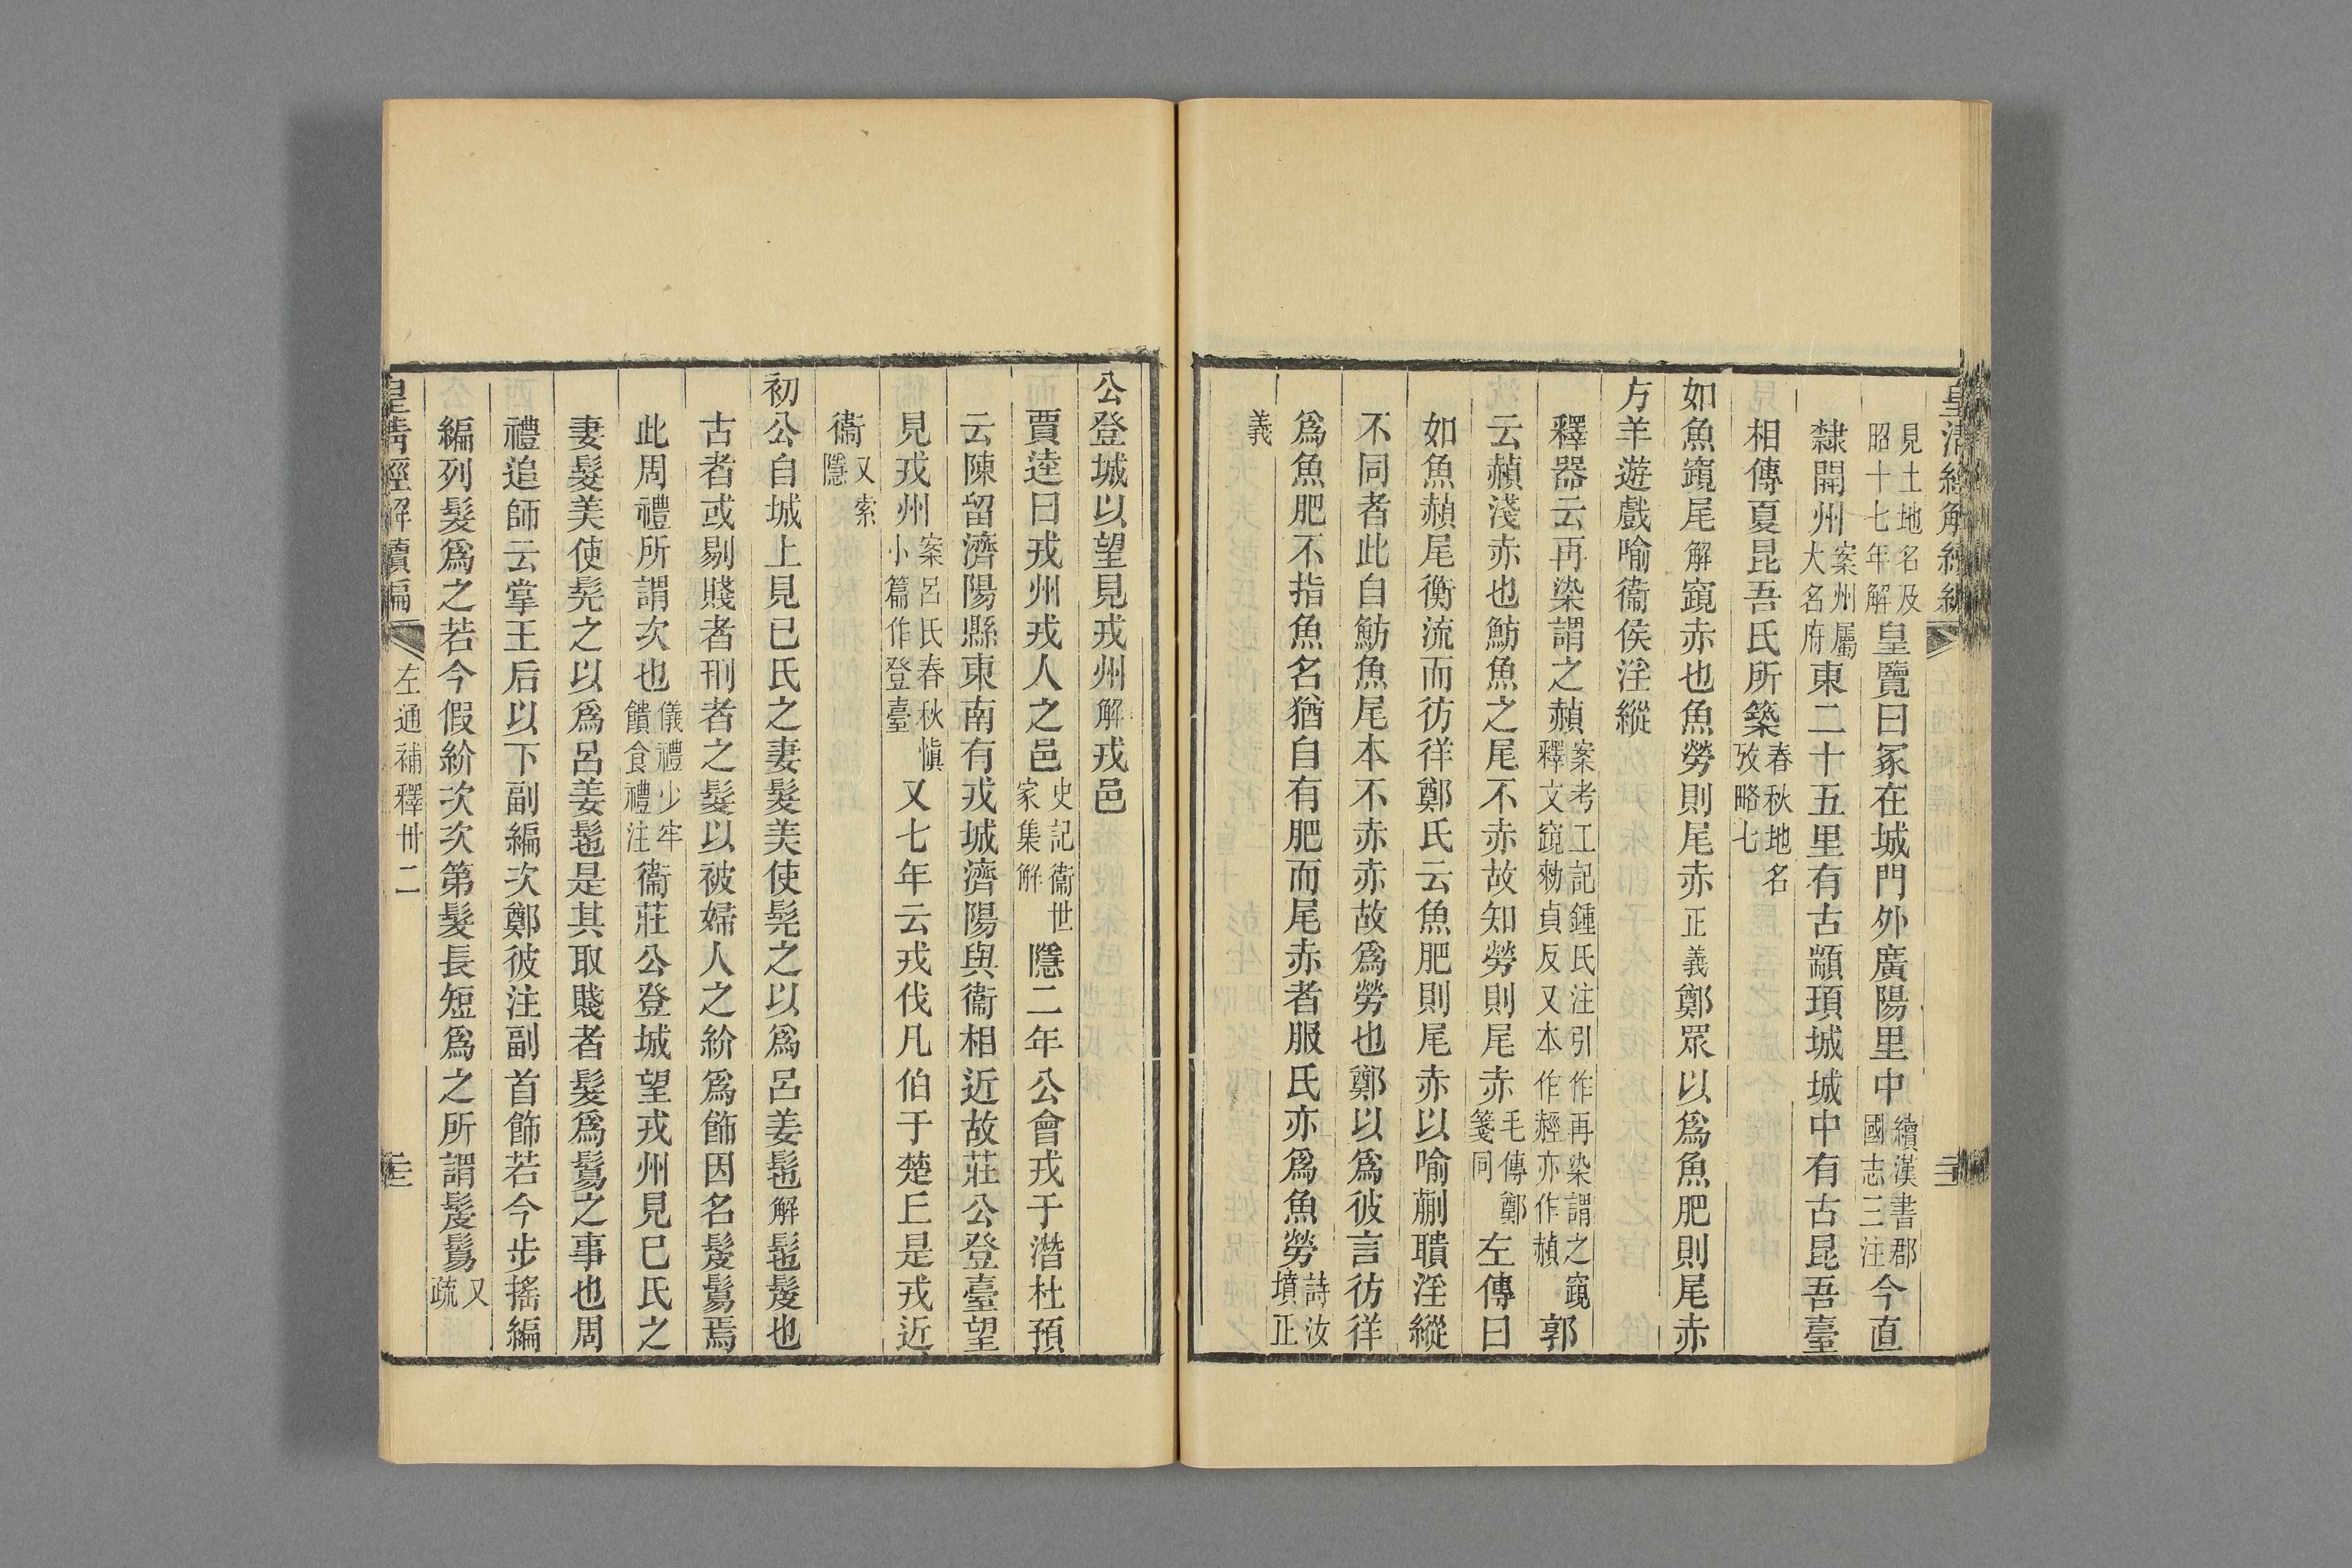 皇清經解續編
見土地名及昭十七年解皇覽曰冢在城門外廣陽里中續漢書郡國志三注今直
隸開州案州屬大名府東二十五里有古顓頊城城中有古昆吾臺
相傳夏昆吾氏所築春秋地名攷略七
如魚竀尾解竀赤也魚勞則尾赤正義鄭眾以爲魚肥則尾赤
方羊遊戲喻衞侯淫縱
釋器云再染謂之赬案考工記鍾氏注引作再染謂之竀釋文竀勑貞反又本作䞓亦作赬郭
云赬淺赤也魴魚之尾不赤故知勞則尾赤毛傳鄭箋同左傳曰
如魚赬尾衡流而彷徉鄭氏云魚肥則尾赤以喻蒯聵淫縱
不同者此自魴魚尾本不赤赤故爲勞也鄭以爲彼言彷徉
爲魚肥不指魚名猶自有肥而尾赤者服氏亦爲魚勞詩汝墳正
義
公登城以望見戎州解戎邑
賈逵曰戎州戎人之邑史記衞世家集解隱二年公會戎于潛杜預
云陳留濟陽縣東南有戎城濟陽與衞相近故莊公登臺望
見戎州案呂氏春秋愼小篇作登臺又七年云戎伐凡伯于楚丘是戎近
衞又索隱
初公自城上見已氏之妻髮美使髡之以爲呂姜髢解髢髲也
古者或剔賤者刑者之髮以被婦人之紒爲飾因名髲鬄焉
此周禮所謂次也儀禮少牢饋食禮注衞莊公登城望戎州見巳氏之
妻髮美使髡之以爲呂姜髢是其取賤者髮爲鬄之事也周
禮追師云掌王后以下副編次鄭彼注副首飾若今步搖編
編列髮爲之若今假紒次次第髮長短爲之所謂髲鬄又疏
皇清經解續編 左通補釋卅二